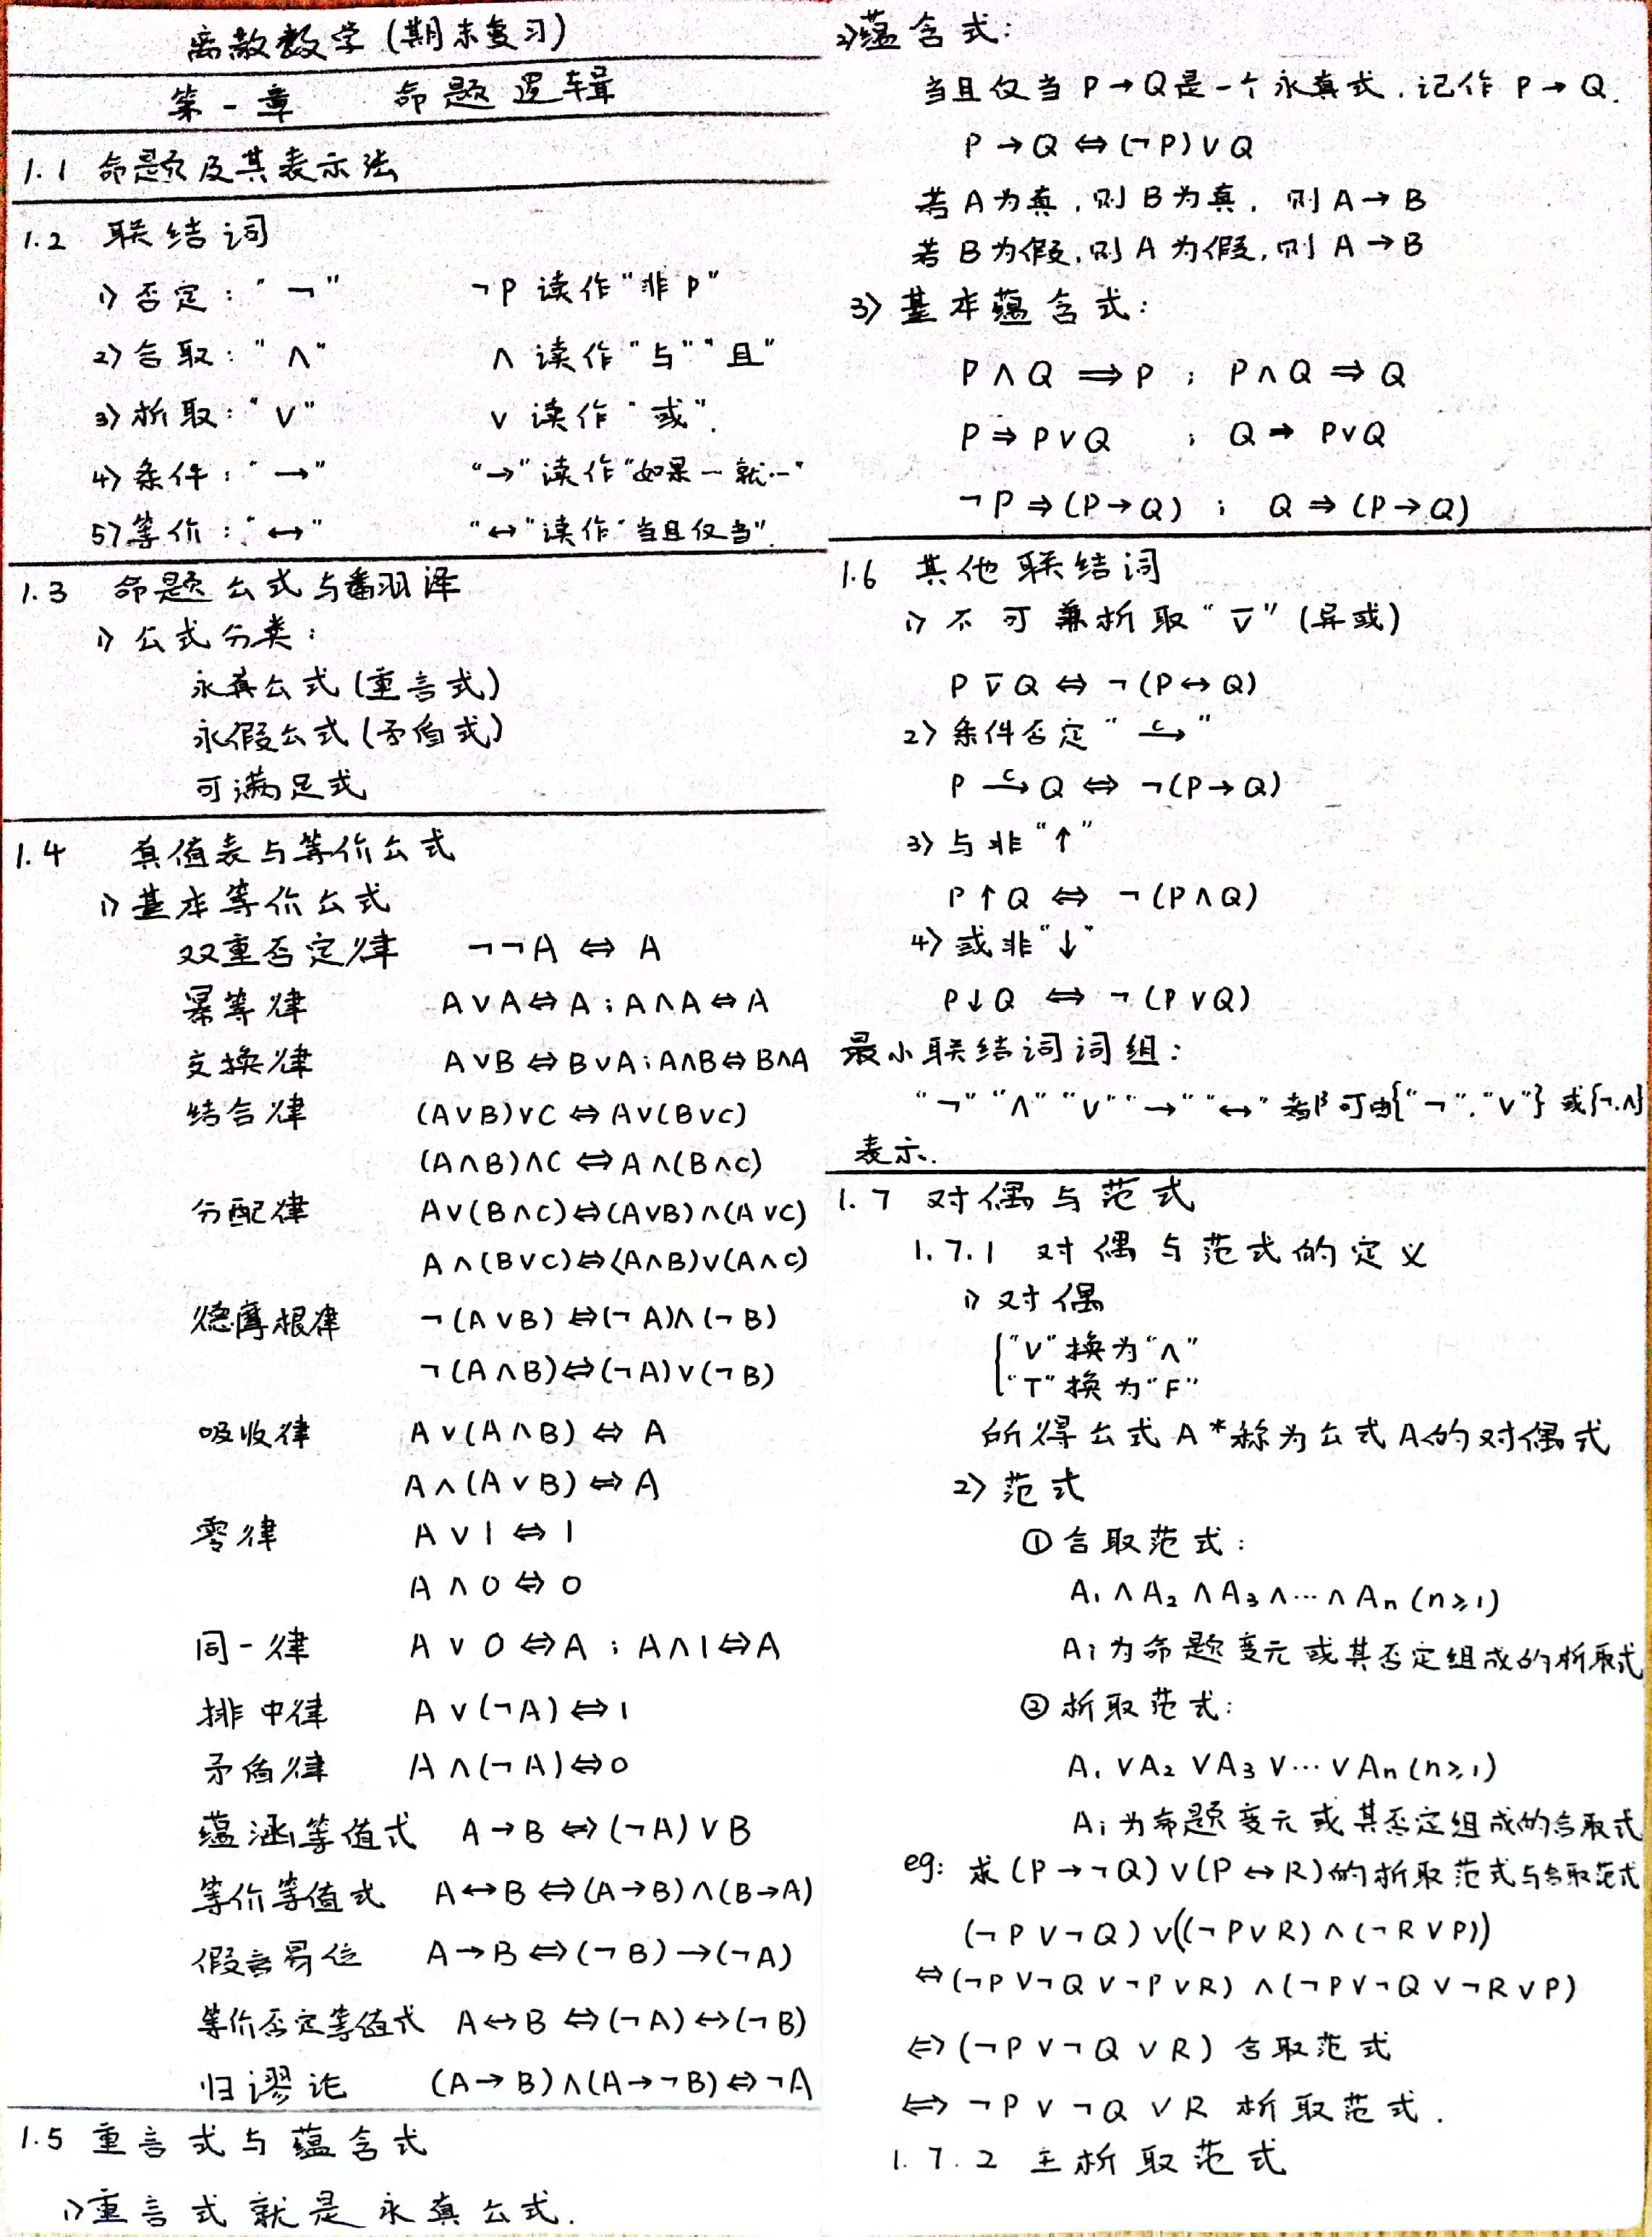 离散数学(期末复习)
第一章 命题逻辑
1.1 命题及其表示法
1.2 联结词
1) 否定:"¬" ¬P 读作"非P"
2) 合取:"∧" ∧ 读作"与""且"
3) 析取:"∨" ∨ 读作"或".
4) 条件:"→" "→"读作"如果…就…"
5) 等价:"↔" "↔"读作"当且仅当".
1.3 命题公式与翻译
1) 公式分类:
永真公式(重言式)
永假公式(矛盾式)
可满足式
1.4 真值表与等价公式
1) 基本等价公式
双重否定律 ¬¬A ⇔ A
幂等律 A∨A⇔A;A∧A⇔A
交换律 A∨B⇔B∨A;A∧B⇔B∧A
结合律 (A∨B)∨C⇔A∨(B∨C)
(A∧B)∧C⇔A∧(B∧C)
分配律 A∨(B∧C)⇔(A∨B)∧(A∨C)
A∧(B∨C)⇔(A∧B)∨(A∧C)
德摩根律 ¬(A∨B)⇔(¬A)∧(¬B)
¬(A∧B)⇔(¬A)∨(¬B)
吸收律 A∨(A∧B)⇔A
A∧(A∨B)⇔A
零律 A∨1⇔1
A∧0⇔0
同一律 A∨0⇔A;A∧1⇔A
排中律 A∨(¬A)⇔1
矛盾律 A∧(¬A)⇔0
蕴涵等值式 A→B⇔(¬A)∨B
等价等值式 A↔B⇔(A→B)∧(B→A)
假言易位 A→B⇔(¬B)→(¬A)
等价否定等值式 A↔B⇔(¬A)↔(¬B)
归谬论 (A→B)∧(A→¬B)⇔¬A
1.5 重言式与蕴含式
1) 重言式就是永真公式.
2) 蕴含式:
当且仅当 P→Q是一个永真式,记作 P→Q.
P→Q⇔(¬P)∨Q
若A为真,则B为真,则A→B
若B为假,则A为假,则A→B
3) 基本蕴含式:
P∧Q⇒P ; P∧Q⇒Q
P⇒P∨Q ; Q⇒P∨Q
¬P⇒(P→Q) ; Q⇒(P→Q)
1.6 其他联结词
1) 不可兼析取"⊽"(异或)
P⊽Q⇔¬(P↔Q)
2) 条件否定"—c→"
P—c→Q⇔¬(P→Q)
3) 与非"↑"
P↑Q⇔¬(P∧Q)
4) 或非"↓"
P↓Q⇔¬(P∨Q)
最小联结词词组:
"¬""∧""∨""→""↔"都可由{"¬"."∨"}或{¬.∧}
表示.
1.7 对偶与范式
1.7.1 对偶与范式的定义
1) 对偶
{"∨"换为"∧"
"T"换为"F"
所得公式A*称为公式A的对偶式
2) 范式
① 合取范式:
A₁∧A₂∧A₃∧…∧Aₙ(n≥1)
Ai为命题变元或其否定组成的析取式
② 析取范式:
A₁∨A₂∨A₃∨…∨Aₙ(n≥1)
Ai为命题变元或其否定组成的合取式
eg: 求(P→¬Q)∨(P↔R)的析取范式与合取范式
(¬P∨¬Q)∨((¬P∨R)∧(¬R∨P))
⇔(¬P∨¬Q∨¬P∨R)∧(¬P∨¬Q∨¬R∨P)
⇔(¬P∨¬Q∨R) 合取范式
⇔¬P∨¬Q∨R 析取范式.
1.7.2 主析取范式